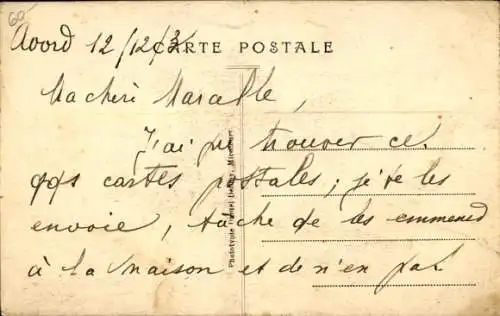 60.-
Avord 12/12/3
CARTE POSTALE
Ma cheri Marcelle,
J'ai pu trouver ces
qqs cartes postales ; je te les
envoie, tâche de les emmener
à la maison et de n'en pas